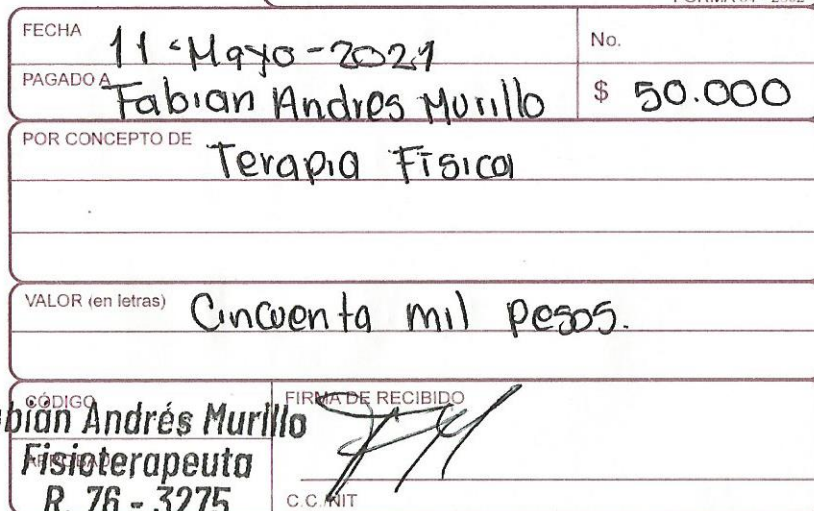 FECHA 11-Mayo-2021
No.
PAGADO A Fabian Andres Murillo
$ 50.000
POR CONCEPTO DE Terapia Física
VALOR (en letras) Cincuenta mil pesos.
CÓDIGO
FIRMA DE RECIBIDO
bián Andrés Murillo
Fisioterapeuta
R. 76 - 3275
C.C./NIT